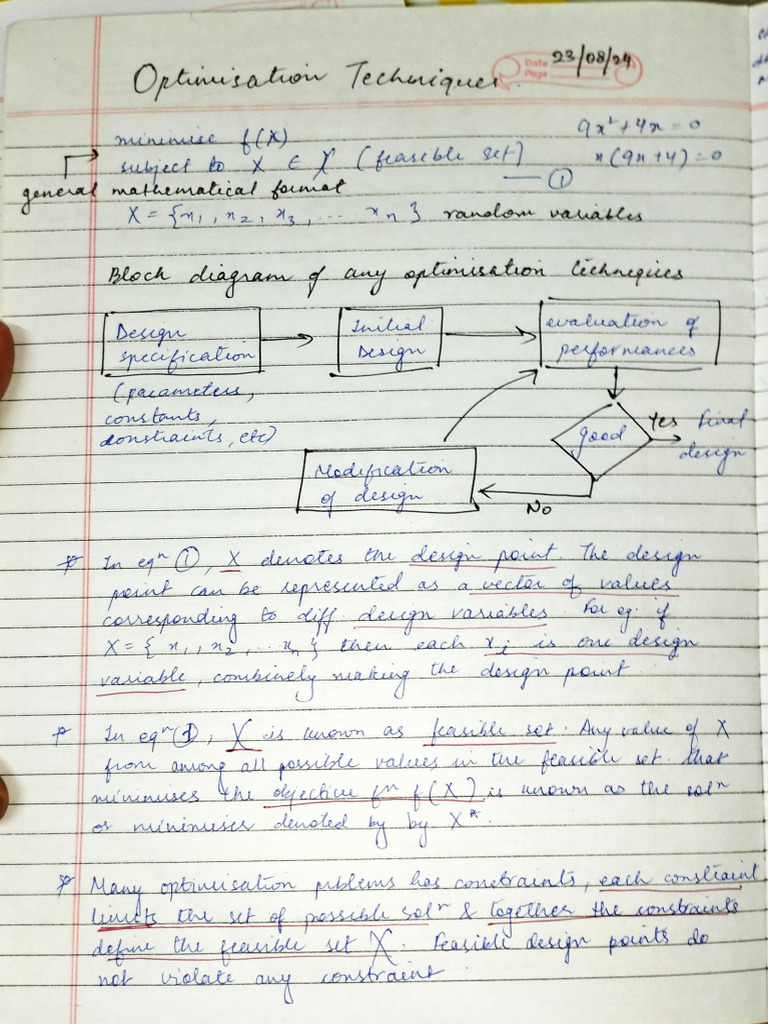 Date 23/08/24
Page
Optimisation Techniques.
minimise f(X)
9x² + 4x = 0
subject to X ∈ X (feasible set)
x(9x+4) = 0
— ①
general mathematical format
X = {x₁, x₂, x₃, ... xₙ} random variables
Block diagram of any optimisation techniques
Design
specification
Initial
Design
evaluation of
performances
(parameters,
constants,
constraints, etc)
good
Yes
Final
design
No
Modification
of design
* In eqⁿ ①, X denotes the design point. The design
point can be represented as a vector of values
corresponding to diff. design variables. For eg. if
X = { x₁, x₂, ... xₙ} then each xᵢ is one design
variable, combinely making the design point.
* In eqⁿ ①, X is known as feasible set. Any value of X
from among all possible values in the feasible set. that
minimises the objective fⁿ f(X) is known as the solⁿ
or minimiser denoted by by X*.
* Many optimisation problems has constraints, each constraint
limits the set of possible solⁿ & together the constraints
define the feasible set X. Feasible design points do
not violate any constraint.